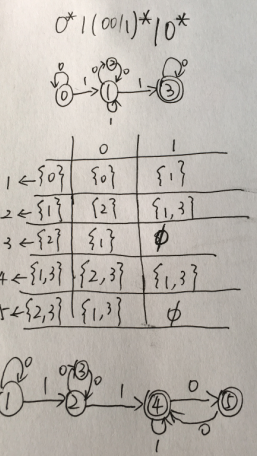 0*1(00/1)*10*
0 1 0 2 0 1 0
0 1 3
1
0 1
1 ← {0} {0} {1}
2 ← {1} {2} {1,3}
3 ← {2} {1} ∅
4 ← {1,3} {2,3} {1,3}
5 ← {2,3} {1,3} ∅
0 0 3 0
1 1 2 1 4 0 5
1 0